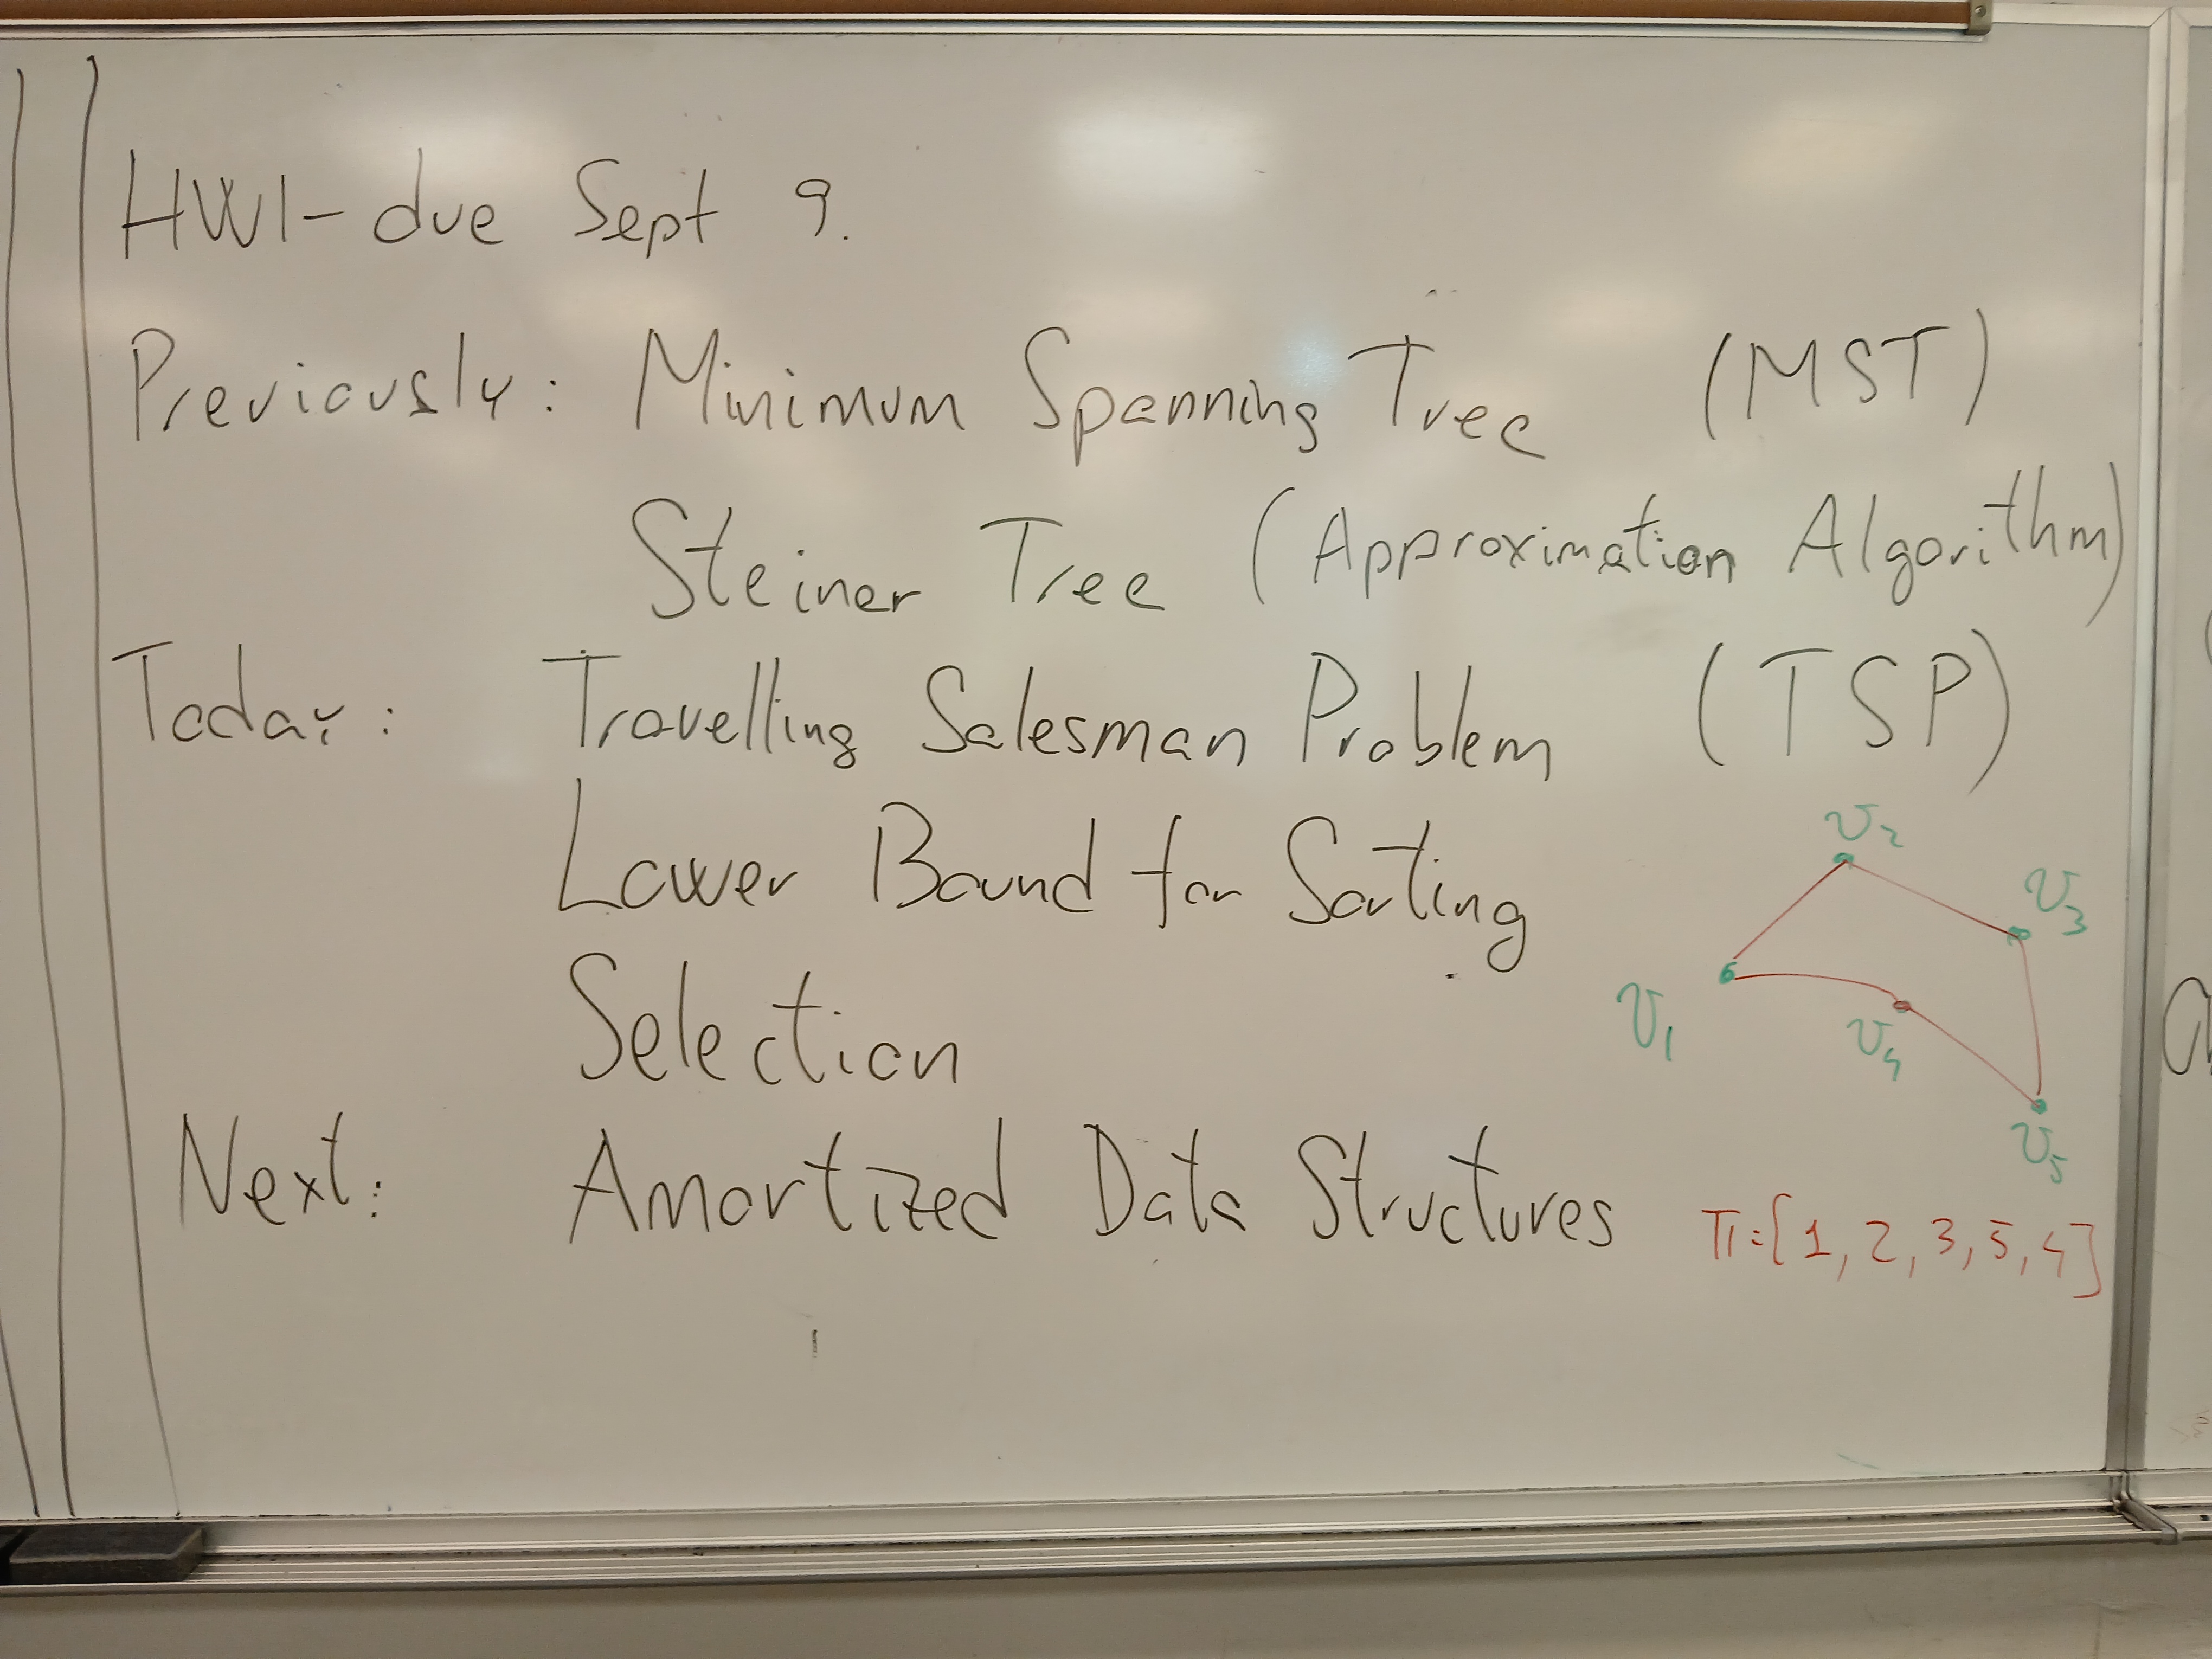 HW1- due Sept 9.
Previously: Minimum Spanning Tree (MST)
Steiner Tree (Approximation Algorithm)
Today: Travelling Salesman Problem (TSP)
Lower Bound for Sorting
Selection
Next: Amortized Data Structures
v₂
v₃
v₁
v₄
v₅
π=[1, 2, 3, 5, 4]